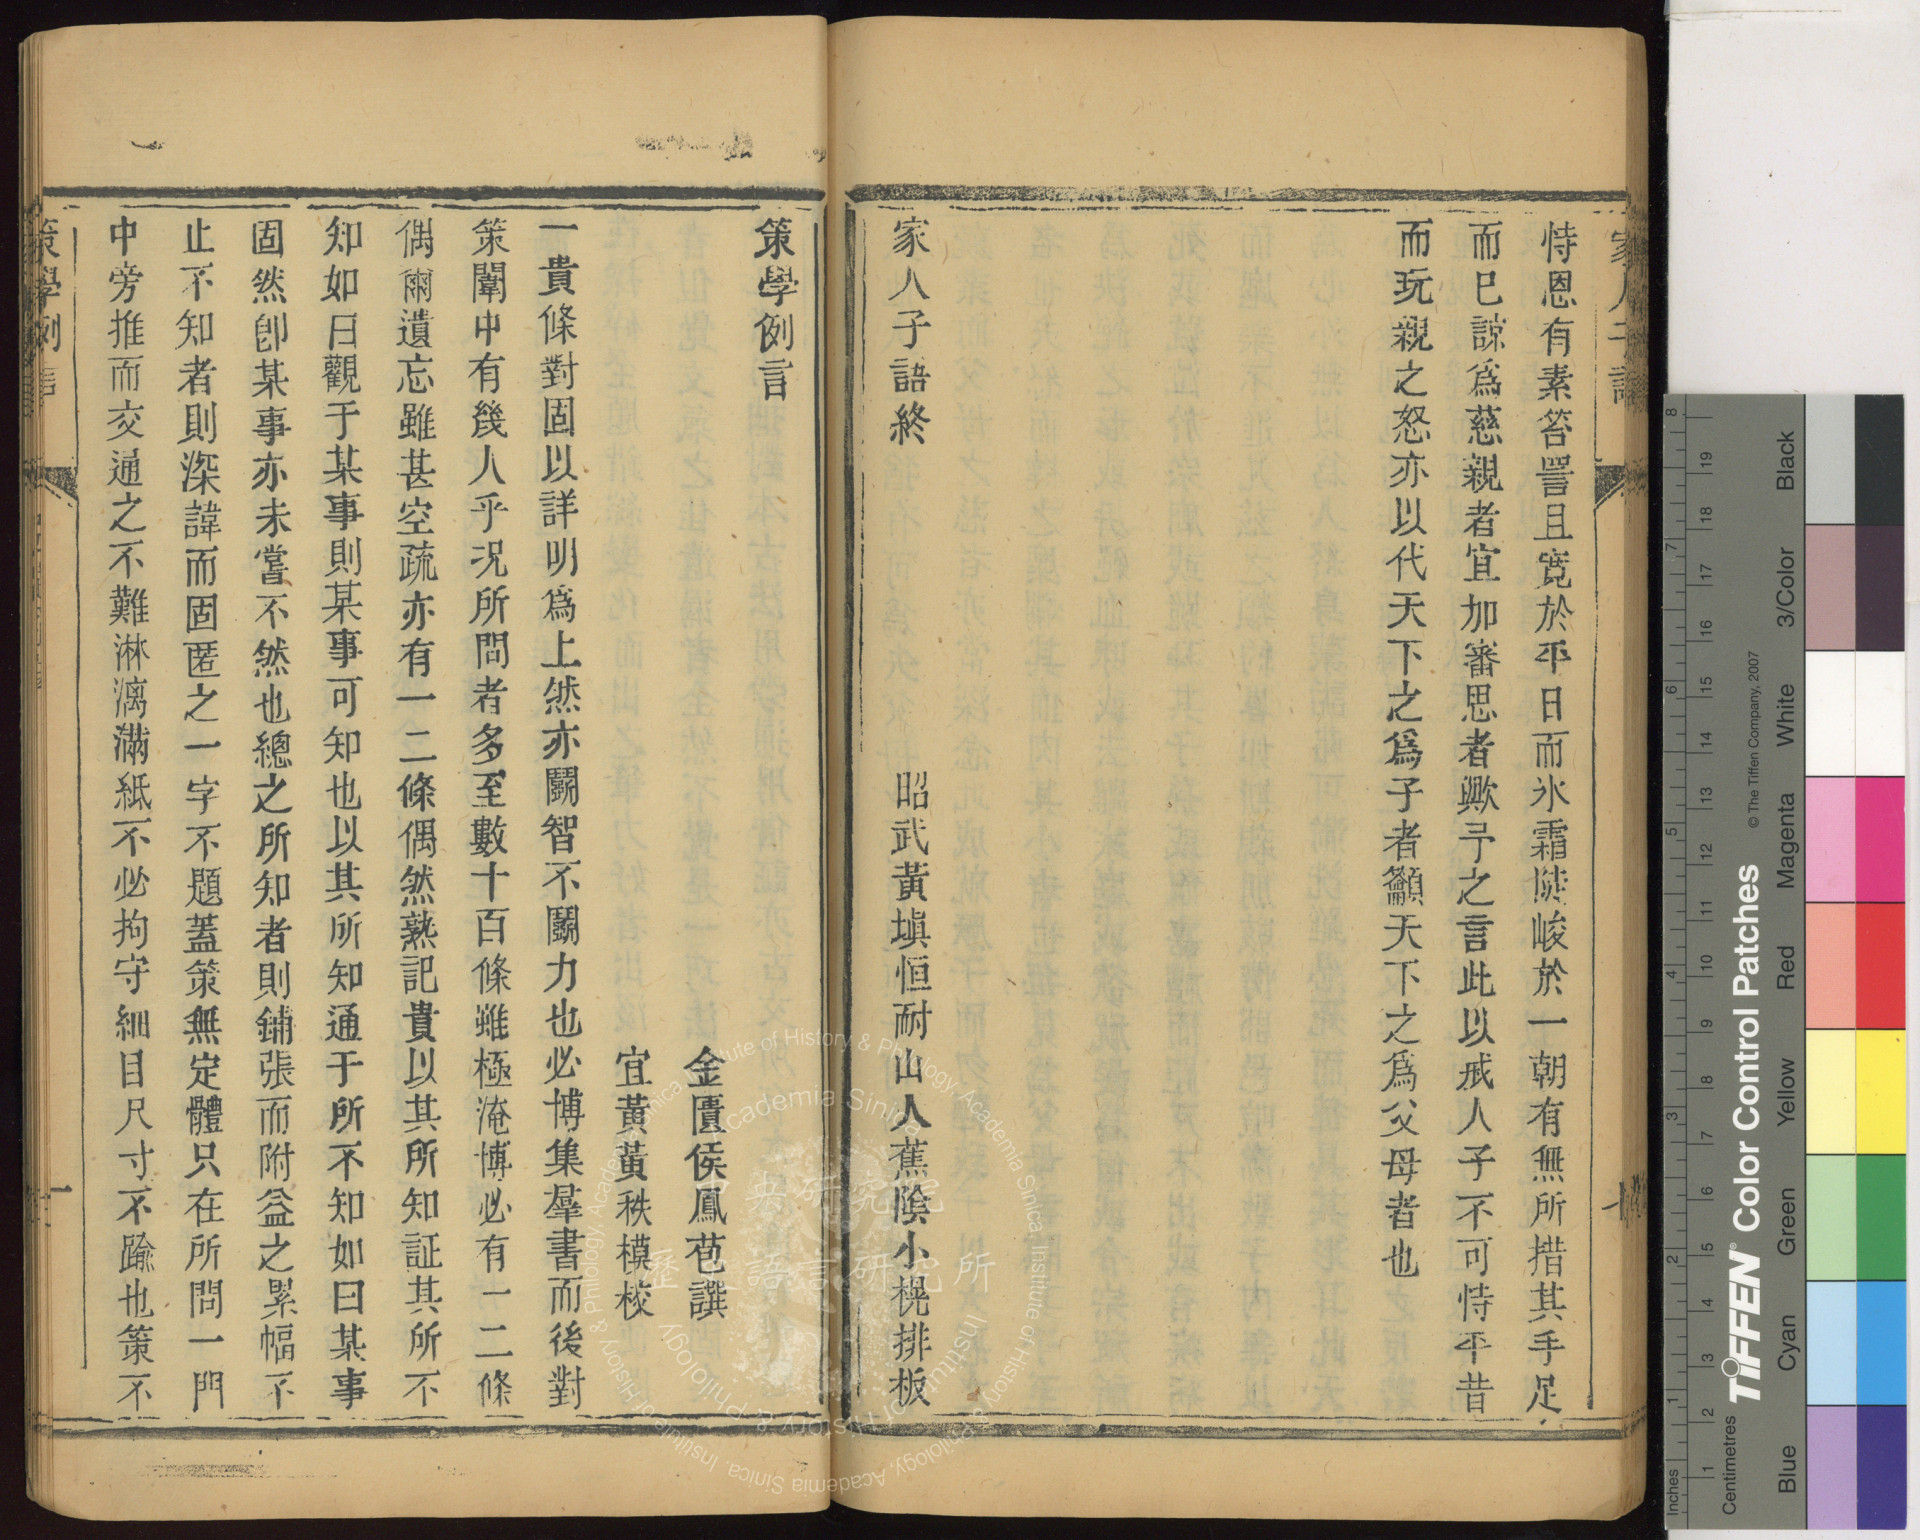 恃恩有素笞詈且寬於平日而氷霜陡峻於一朝有無所措其手足
而已諒爲慈親者宜加審思者歟予之言此以戒人子不可恃平昔
而玩親之怒亦以代天下之爲子者籲天下之爲父母者也
家人子語終
昭武黃塡恒耐山人蕉陰小榥排板
策學例言
金匱侯鳳苞譔
宜黃黃秩模校
一貴條對固以詳明爲上然亦鬭智不鬭力也必博集羣書而後對
策闈中有幾人乎况所問者多至數十百條雖極淹博必有一二條
偶爾遺忘雖甚空疏亦有一二條偶然熟記貴以其所知証其所不
知如曰觀于某事則某事可知也以其所知通于所不知如曰某事
固然卽某事亦未嘗不然也總之所知者則鋪張而附益之累幅不
止不知者則深諱而固匿之一字不題蓋策無定體只在所問一門
中旁推而交通之不難淋漓滿紙不必拘守細目尺寸不踰也策不
策學例言
一
歷史語言研究所
Institute of History & Philology, Academia Sinica
TIFFEN Color Control Patches
© The Tiffen Company, 2007
Centimetres
Inches
Blue
Cyan
Green
Yellow
Red
Magenta
White
3/Color
Black
1 2 3 4 5 6 7 8 9 10 11 12 13 14 15 16 17 18 19
1 2 3 4 5 6 7 8